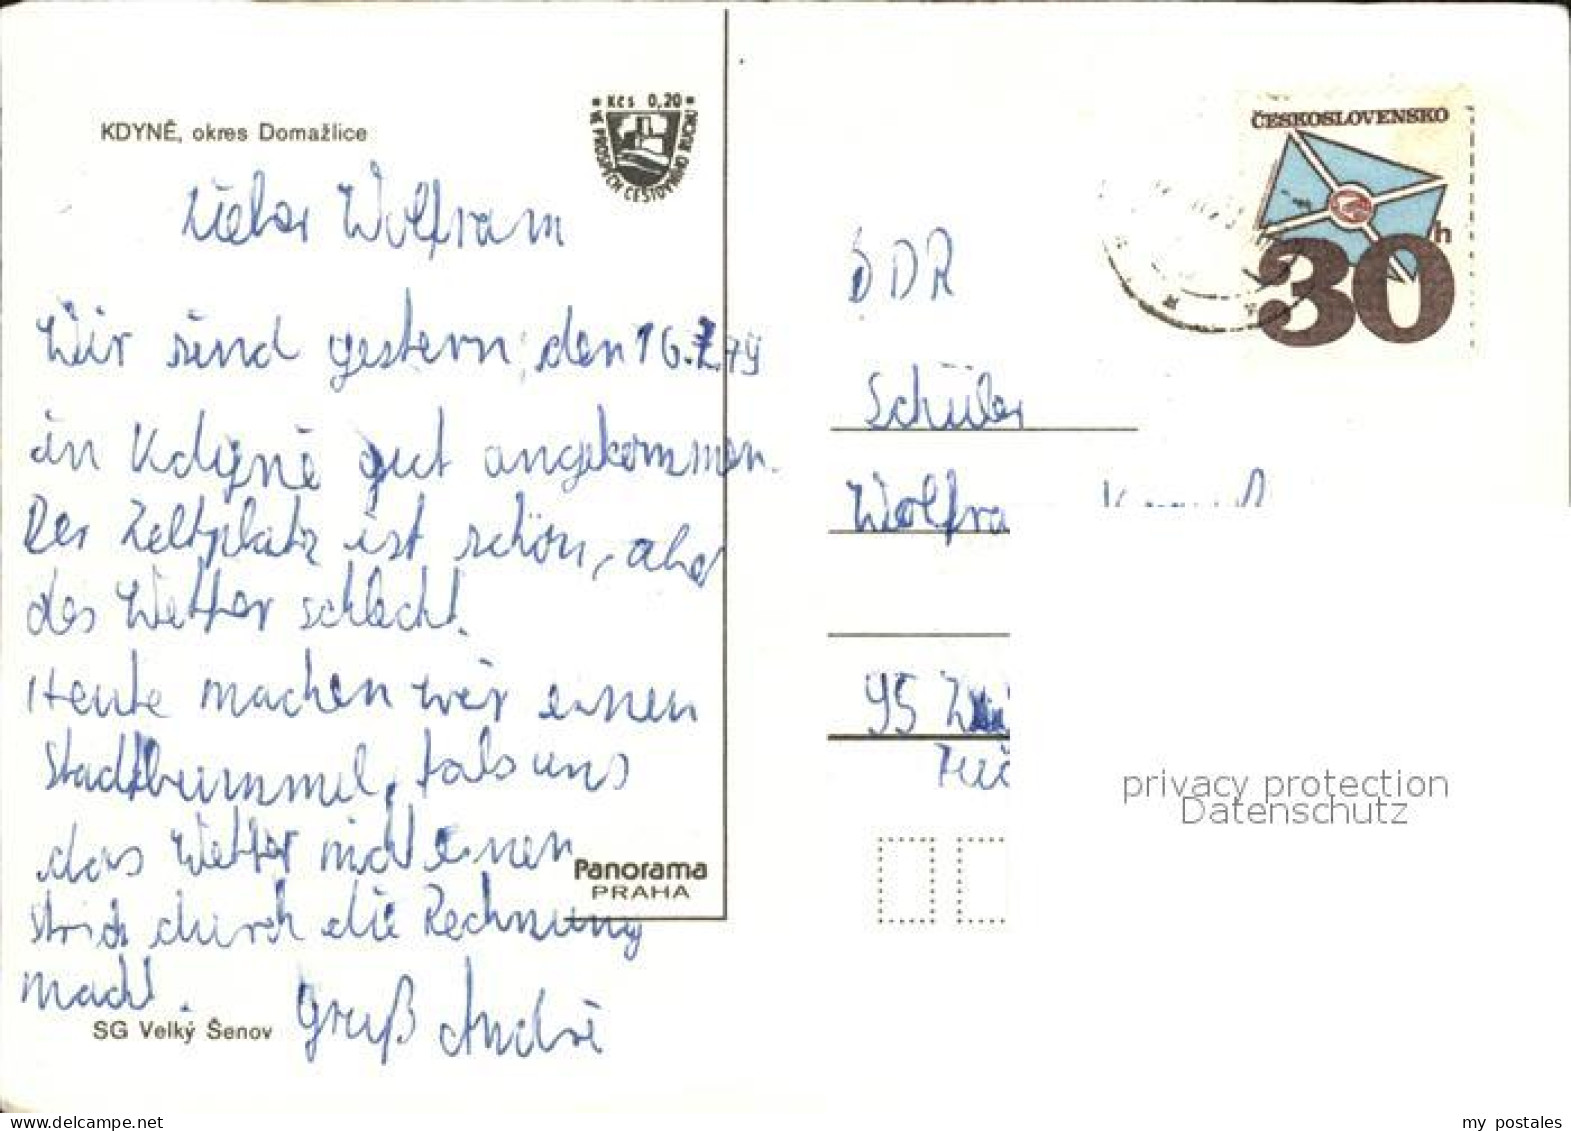 KDYNĚ, okres Domažlice
Kčs 0,20
VE PROSPĚCH CESTOVNÍHO RUCHU
ČESKOSLOVENSKO
30h
Lieber Wolfram
Wir sind gestern, den 16.7.79
in Kdyně gut angekommen.
Der Zeltplatz ist schön, aber
das Wetter schlecht.
Heute machen wir einen
Stadtbummel, fals uns
das Wetter nicht einen
Strich durch die Rechnung
macht.
Gruß André
DDR
Schüler
Wolfra
95
Panorama
PRAHA
SG Velký Šenov
privacy protection
Datenschutz
my postales
www.delcampe.net